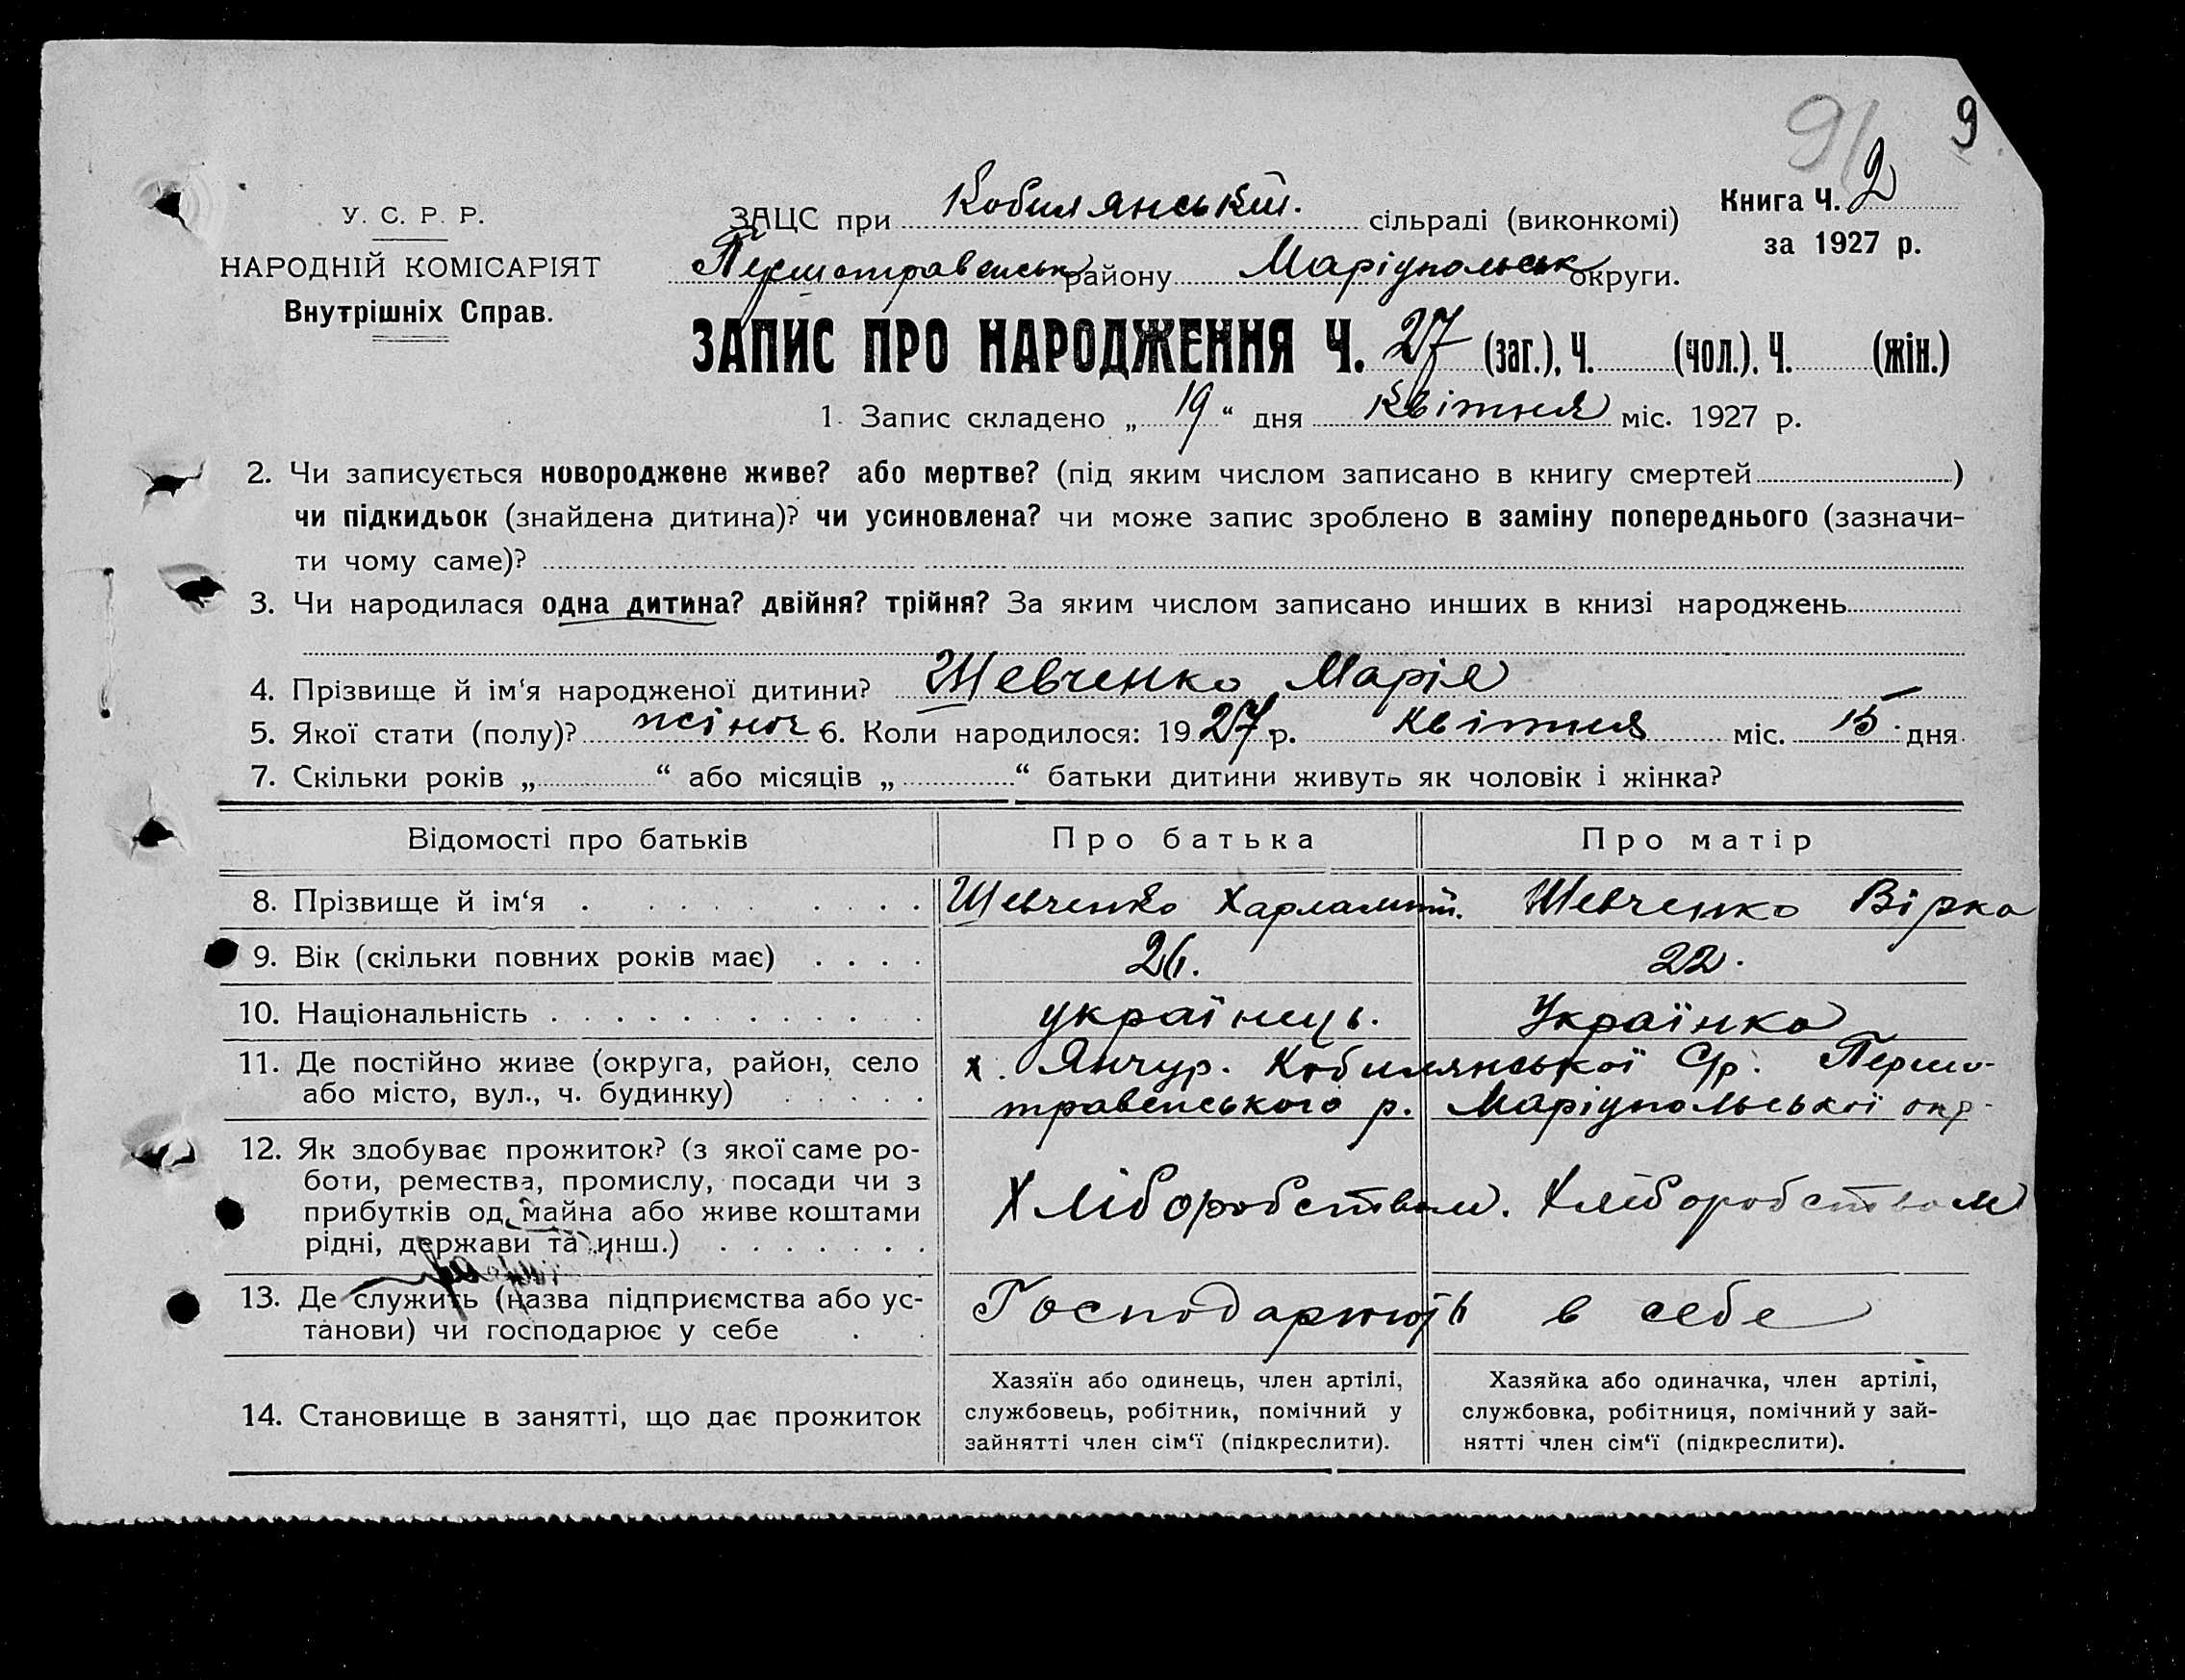 91 9
У. С. Р. Р.
НАРОДНІЙ КОМІСАРІЯТ
Внутрішніх Справ.
ЗАЦС при Кобилянській. сільраді (виконкомі)
Книга Ч. 2
за 1927 р.
Першотравенськ району Маріупольськ округи.
ЗАПИС ПРО НАРОДЖЕННЯ Ч. 27 (заг.), Ч. (чол.). Ч. (жін.)
1. Запис складено „ 19 “ дня Квітня міс. 1927 р.
2. Чи записується новороджене живе? або мертве? (під яким числом записано в книгу смертей )
чи підкидьок (знайдена дитина)? чи усиновлена? чи може запис зроблено в заміну попереднього (зазначи-
ти чому саме)?
3. Чи народилася одна дитина? двійня? трійня? За яким числом записано инших в книзі народжень
4. Прізвище й ім‘я народженої дитини? Шевченко Марія
5. Якої стати (полу)? жіноч 6. Коли народилося: 1927 р. квітня міс. 15 дня
7. Скільки років „ “ або місяців „ “ батьки дитини живуть як чоловік і жінка?
Відомості про батьків Про батька Про матір
8. Прізвище й ім‘я . . . . . . Шевченко Харлампій. Шевченко Вірка
9. Вік (скільки повних років має) . . . . 26. 22.
10. Національність . . . . . . . . . . . українець. Українка
11. Де постійно живе (округа, район, село
або місто, вул., ч. будинку) . . . . .
х. Янчур. Кобилянської С/р. Першо-
травенського р. Маріупольської окр.
12. Як здобуває прожиток? (з якої саме ро-
боти, ремества, промислу, посади чи з
прибутків од майна або живе коштами
рідні, держави та инш.) . . . . . . .
Хліборобством. Хліборобством
13. Де служить (назва підприємства або ус-
танови) чи господарює у себе . .
Господарюють в себе
14. Становище в занятті, що дає прожиток
Хазяїн або одинець, член артілі,
службовець, робітник, помічний у
зайнятті член сім‘ї (підкреслити).
Хазяйка або одиначка, член артілі,
службовка, робітниця, помічний у зай-
нятті член сім‘ї (підкреслити).